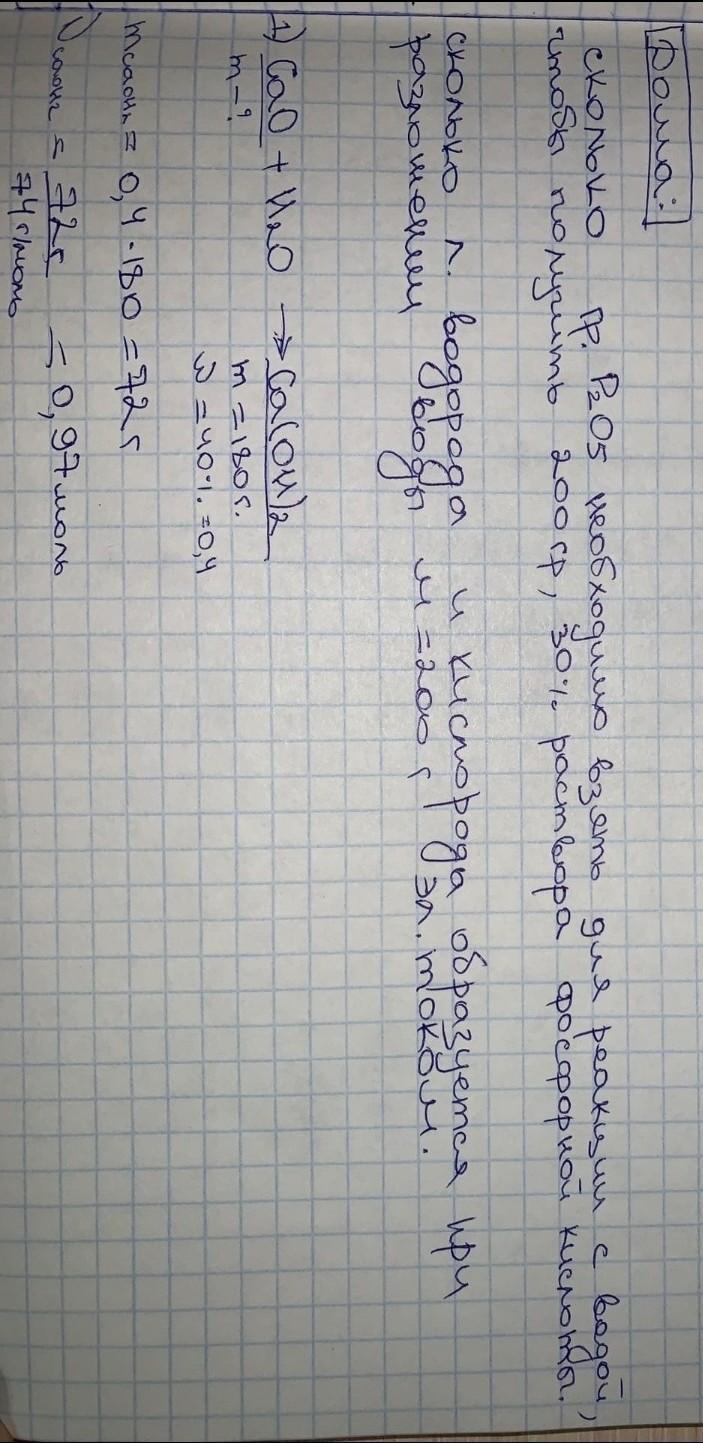 Дома:
сколько гр. P₂O₅ необходимо взять для реакции с водой,
чтобы получить 200 гр, 30% раствора фосфорной кислоты.
сколько л. водорода и кислорода образуется при
разложении воды м = 200 г эл. током.
1) CaO + H₂O → Ca(OH)2
m - ? m = 180 г.
ω = 40% = 0,4
m CaOH₂ = 0,4 · 180 = 72 г
ν CaOH₂ = 72г / 74 г/моль = 0,97 моль